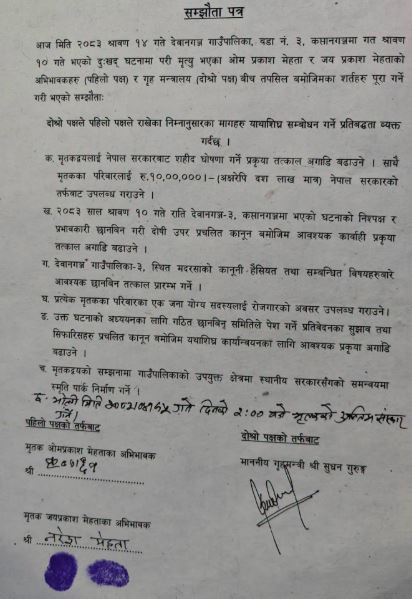 सम्झौता पत्र
आज मिति २०८३ श्रावण १४ गते देवानगञ्ज गाउँपालिका, वडा नं. ३, कप्तानगञ्जमा गत श्रावण
१० गते भएको दुःखद् घटनामा परी मृत्यु भएका ओम प्रकाश मेहता र जय प्रकाश मेहताको
अभिभावकहरु (पहिलो पक्ष) र गृह मन्त्रालय (दोश्रो पक्ष) बीच तपसिल बमोजिमका शर्तहरु पूरा गर्ने
गरी भएको सम्झौताः
दोश्रो पक्षले पहिलो पक्षले राखेका निम्नानुसारका मागहरु यथाशिघ्र सम्बोधन गर्ने प्रतिबद्धता व्यक्त
गर्दछ ।
क. मृतकद्वयलाई नेपाल सरकारबाट शहीद घोषणा गर्ने प्रकृया तत्काल अगाडि बढाउने । साथै
मृतकका परिवारलाई रु.१०,००,०००।– (अक्षरेपि दश लाख मात्र) नेपाल सरकारको
तर्फबाट उपलब्ध गराउने ।
ख. २०८३ साल श्रावण १० गते राति देवानगञ्ज-३, कप्तानगञ्जमा भएको घटनाको निश्पक्ष र
प्रभावकारी छानविन गरी दोषी उपर प्रचलित कानून बमोजिम आवश्यक कार्वाही प्रकृया
तत्काल अगाडि बढाउने ।
ग. देवानगञ्ज गाउँपालिका-३, स्थित मदरसाको कानूनी हैसियत तथा सम्बन्धित विषयहरुबारे
आवश्यक छानबिन तत्काल प्रारम्भ गर्ने ।
घ. प्रत्येक मृतकका परिवारका एक जना योग्य सदस्यलाई रोजगारको अवसर उपलब्ध गराउने।
ङ. उक्त घटनाको अध्ययनका लागि गठित छानविन समितिले पेश गर्ने प्रतिवेदनका सुझाव तथा
सिफारिसहरु प्रचलित कानून बमोजिम यथाशिघ्र कार्यान्वयनका लागि आवश्यक प्रकृया अगाडि
बढाउने ।
च. मृतकद्वयको सम्झनामा गाउँपालिकाको उपयुक्त क्षेत्रमा स्थानीय सरकारसँगको समन्वयमा
स्मृति पार्क निर्माण गर्ने ।
छ. भोली मिति गते दिनको २:०० बजे मृतकको अन्तिम संस्कार
गर्ने।
पहिलो पक्षको तर्फबाट
दोश्रो पक्षको तर्फबाट
मृतक ओमप्रकाश मेहताका अभिभावक
श्री
माननीय गृहमन्त्री श्री सुधन गुरुङ
मृतक जयप्रकाश मेहताका अभिभावक
श्री नरेश मेहता